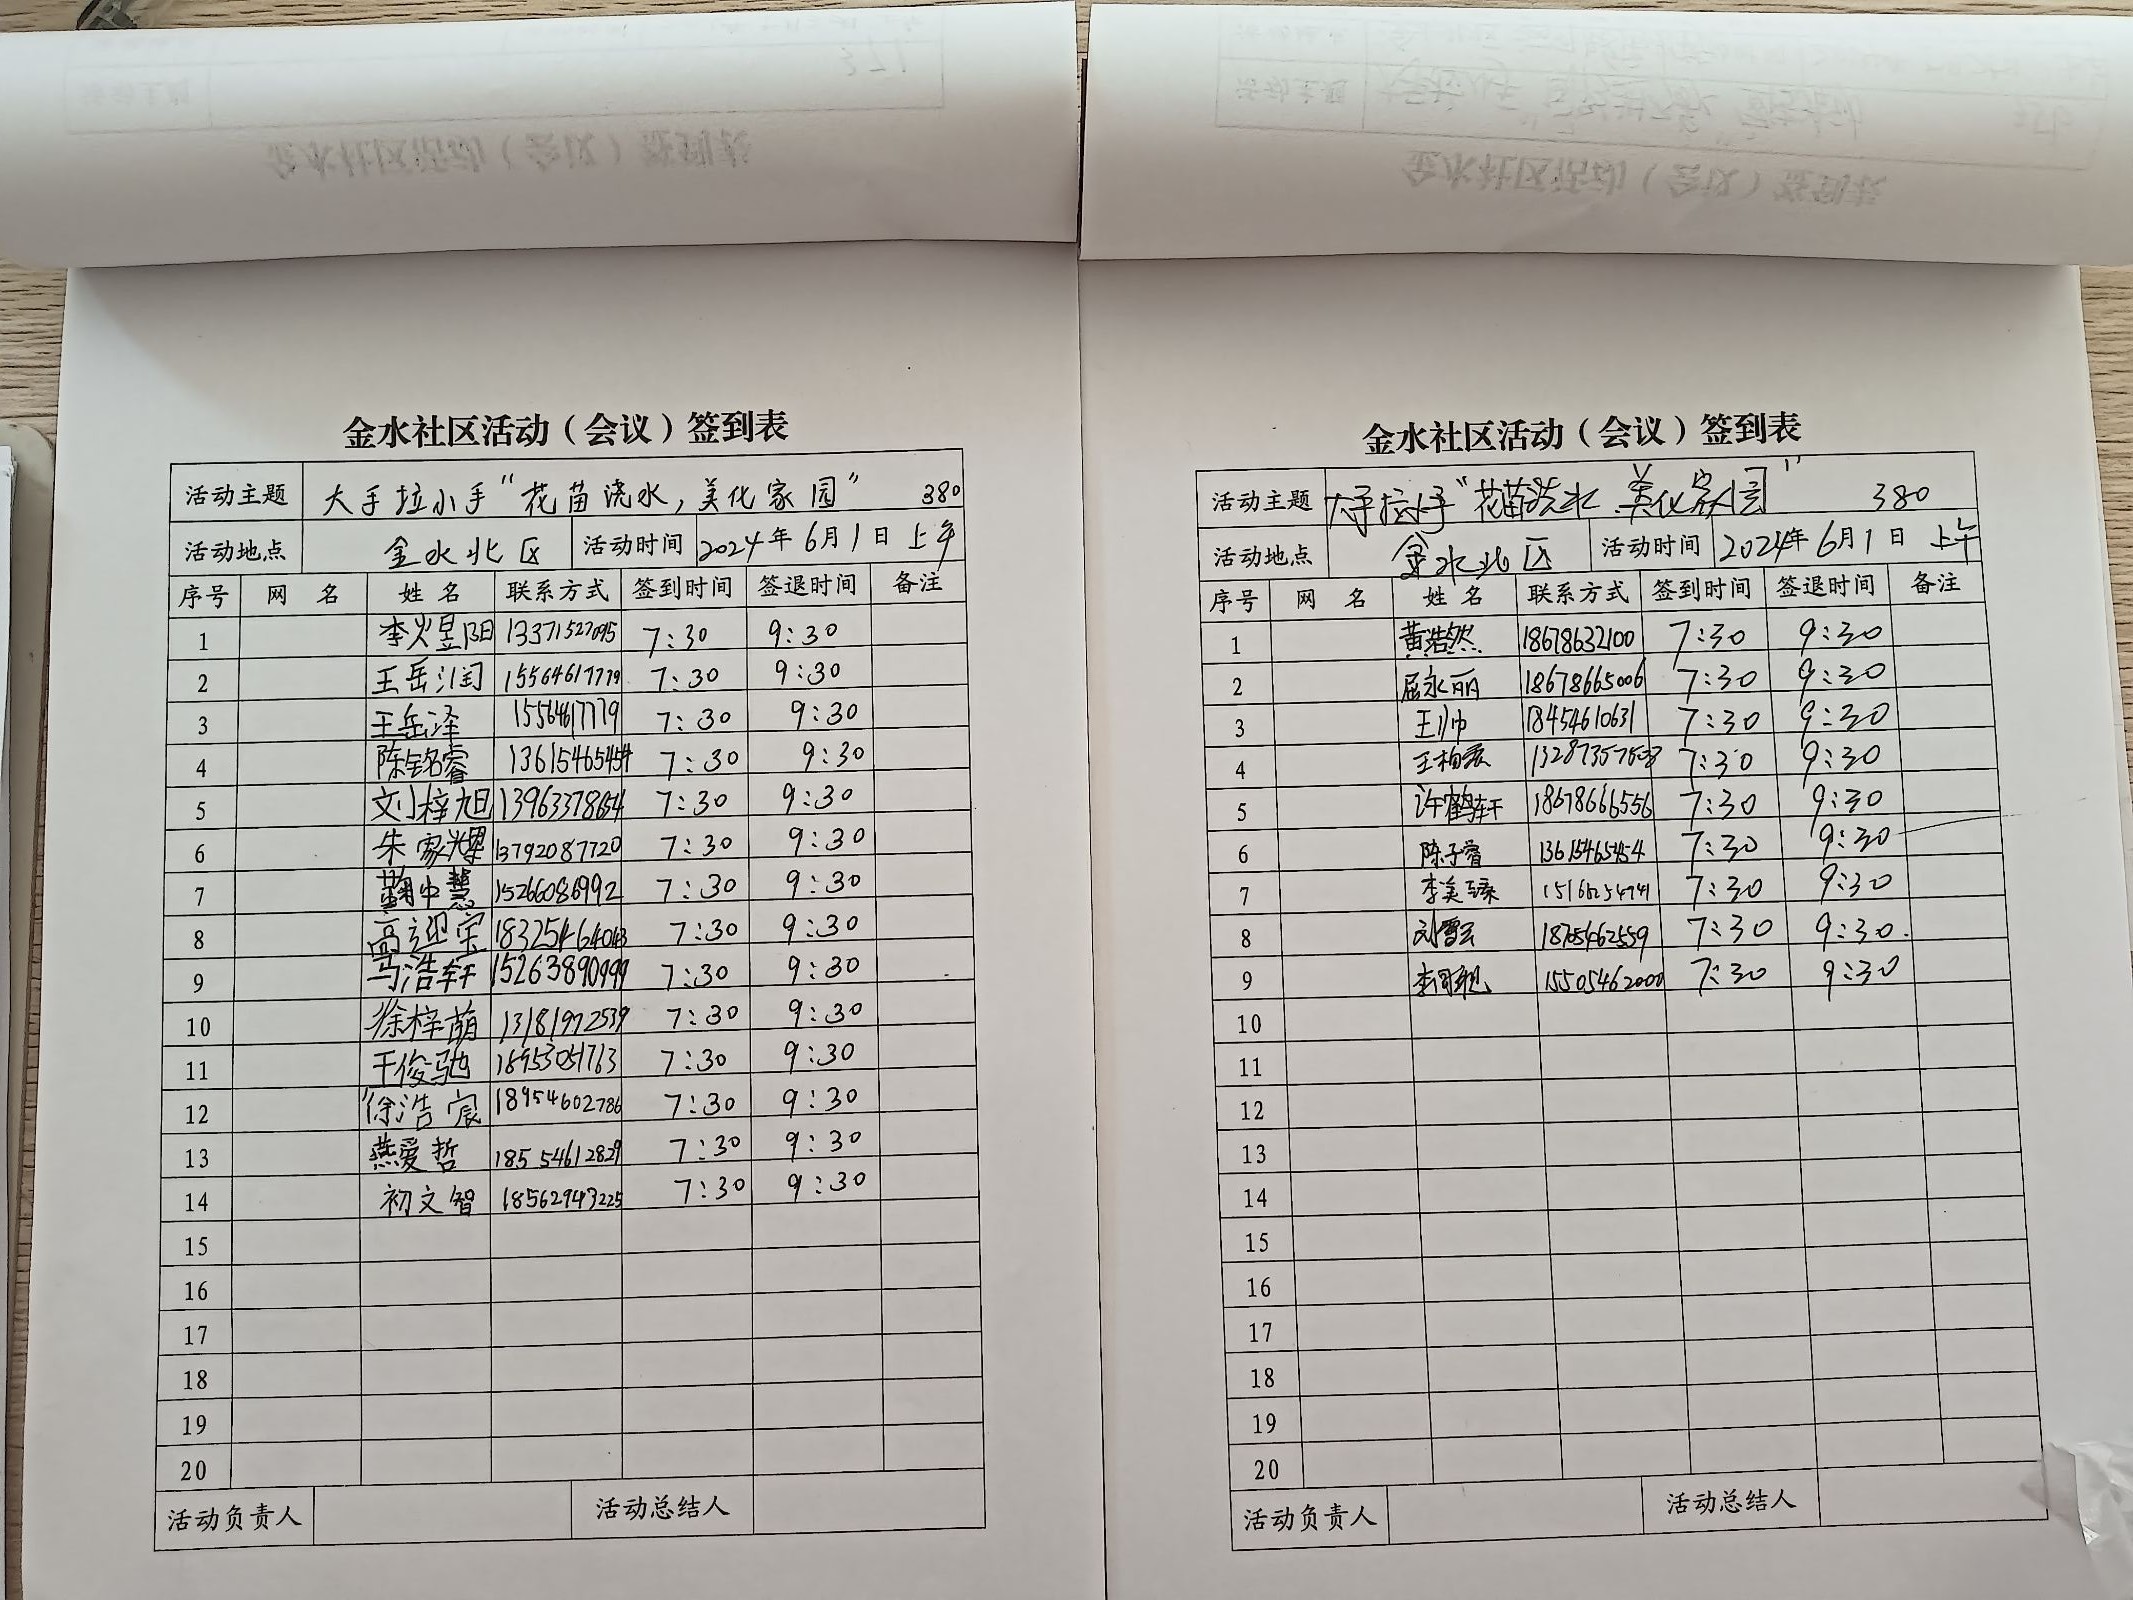 金水社区活动（会议）签到表
活动主题 大手拉小手“花苗浇水，美化家园” 380
活动地点 金水北区 活动时间 2024年6月1日上午
序号 网 名 姓 名 联系方式 签到时间 签退时间 备注
1 李煜阳 13371527095 7:30 9:30
2 王岳润 15564617779 7:30 9:30
3 王岳泽 15564617779 7:30 9:30
4 陈铭睿 13615465454 7:30 9:30
5 刘梓旭 13963378654 7:30 9:30
6 朱家耀 13792087720 7:30 9:30
7 中慧 15266086992 7:30 9:30
8 高迎宝 18325464043 7:30 9:30
9 马浩轩 15263890999 7:30 9:30
10 徐梓萌 13181972539 7:30 9:30
11 王俊驰 7:30 9:30
12 徐浩宸 18954602786 7:30 9:30
13 燕爱哲 18554612829 7:30 9:30
14 初文智 18562943225 7:30 9:30
15
16
17
18
19
20
活动负责人 活动总结人
金水社区活动（会议）签到表
活动主题 大手拉小手“花苗浇水.美化家园” 380
活动地点 金水北区 活动时间 2024年6月1日上午
序号 网 名 姓 名 联系方式 签到时间 签退时间 备注
1 黄浩然 18678632100 7:30 9:30
2 屈永丽 18678665006 7:30 9:30
3 王帅 18454610631 7:30 9:30
4 王柏 7:30 9:30
5 许鹤轩 18678666556 7:30 9:30
6 陈子睿 13615465454 7:30 9:30
7 李美臻 7:30 9:30
8 刘雪云 18705462559 7:30 9:30.
9 李 15505462000 7:30 9:30
10
11
12
13
14
15
16
17
18
19
20
活动负责人 活动总结人